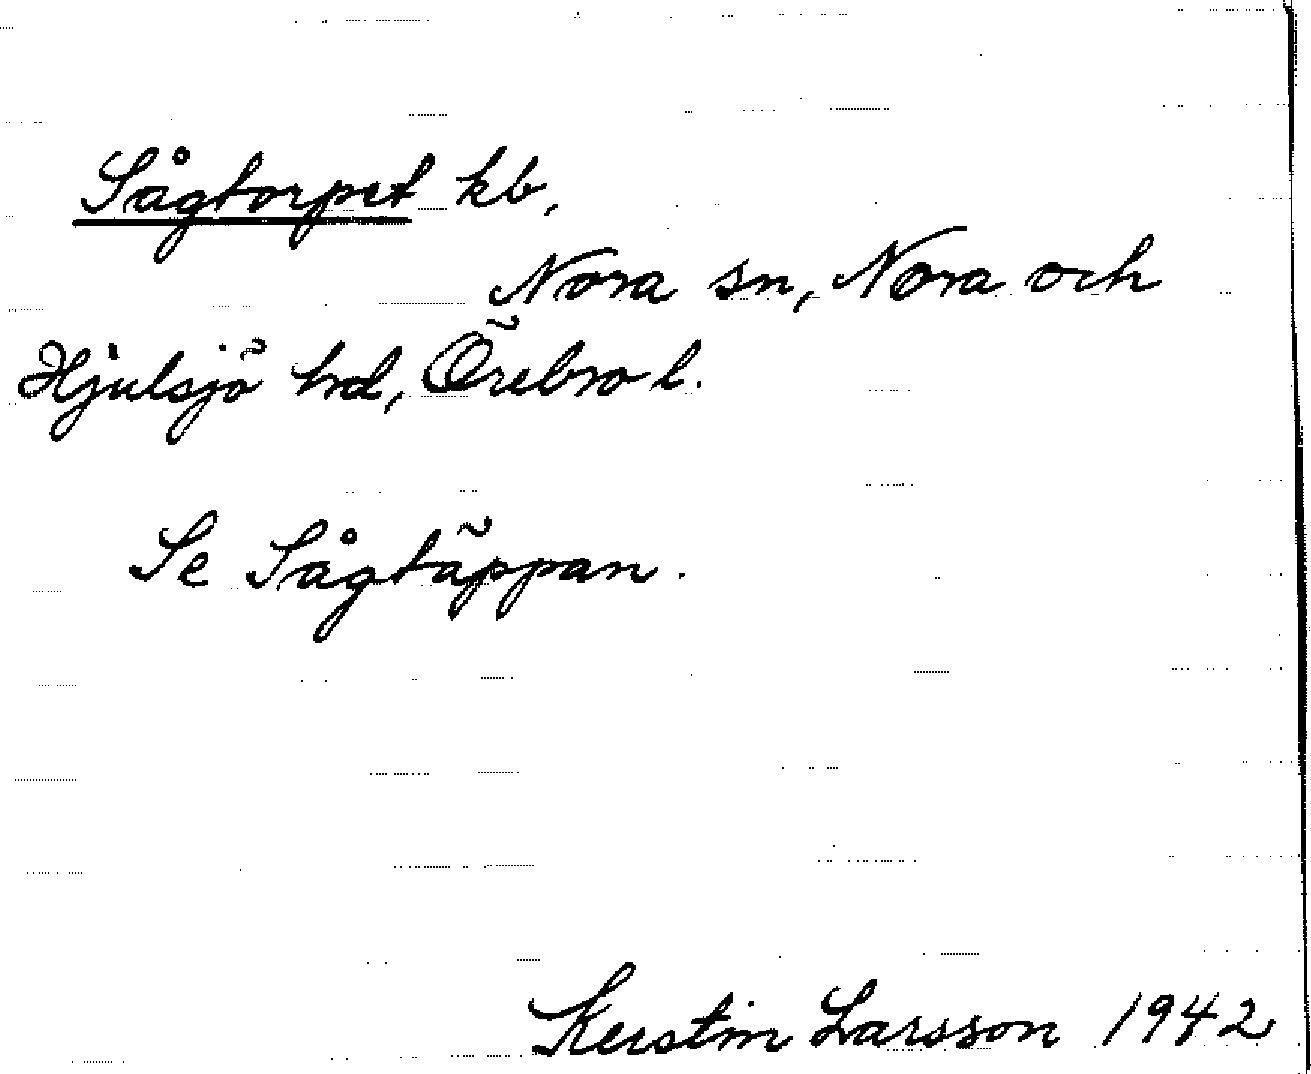 Sågtorpet kb,
Nora sn, Nora och
Hjulsjö hrd, Örebro l.
Se Sågtäppan.
Kerstin Larsson 1942